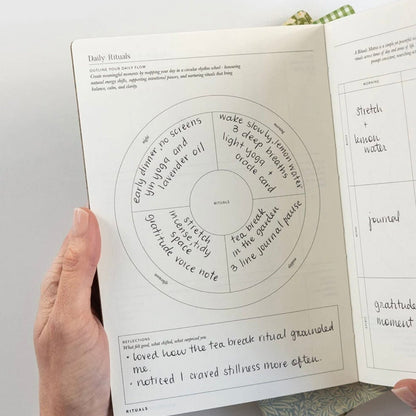 Daily Rituals
OUTLINE YOUR DAILY FLOW
Create meaningful moments by mapping your day in a circular rhythm wheel - honouring
natural energy shifts, supporting intentional pauses, and nurturing rituals that bring
balance, calm, and clarity.
night
early dinner, no screens
yin yoga and
lavender oil
morning
wake slowly, lemon water
3 deep breaths
light yoga +
oracle card
RITUALS
stretch
incense, tidy
space
gratitude voice note
tea break
in the garden
3 line journal pause
REFLECTIONS
What felt good, what shifted, what surprised you
• loved how the tea break ritual grounded
me.
• noticed I craved stillness more often.
RITUALS
A Rituals Matrix is a simple yet powerful
rituals across times of day and areas of life.
MORNING
stretch
+
lemon
water
journal
gratitude
moment